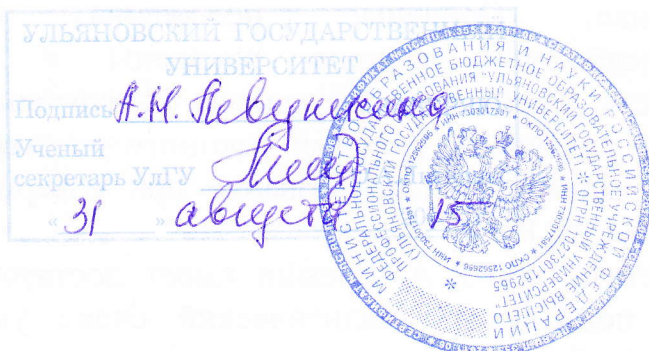 УЛЬЯНОВСКИЙ ГОСУДАРСТВЕННЫЙ
УНИВЕРСИТЕТ
Подпись А.М. Певушкина
Ученый
секретарь УлГУ
« 31 » августа 15
МИНИСТЕРСТВО ОБРАЗОВАНИЯ И НАУКИ РОССИЙСКОЙ ФЕДЕРАЦИИ
ФЕДЕРАЛЬНОЕ ГОСУДАРСТВЕННОЕ БЮДЖЕТНОЕ ОБРАЗОВАТЕЛЬНОЕ УЧРЕЖДЕНИЕ ВЫСШЕГО
ПРОФЕССИОНАЛЬНОГО ОБРАЗОВАНИЯ "УЛЬЯНОВСКИЙ ГОСУДАРСТВЕННЫЙ УНИВЕРСИТЕТ"
(УЛЬЯНОВСКИЙ ГОСУДАРСТВЕННЫЙ УНИВЕРСИТЕТ) * ОГРН 1027301162965
* ИНН 7303017581 * ОКПО 12562696